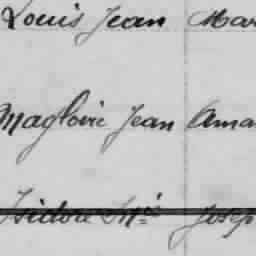 Louis Jean Mar
Magloire Jean Ama
Isidore Mie Josep